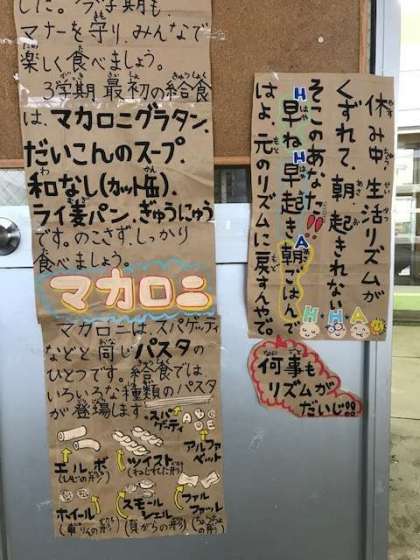 した。今学期も、
マナーを守り、みんなで
楽しく食べましょう。
3学期最初の給食
は、マカロニグラタン、
だいこんのスープ、
和なし(カット缶)、
ライ麦パン、ぎゅうにゅう
です。のこさず、しっかり
食べましょう。
マカロニ
マカロニは、スパゲッティ
などと同じパスタの
ひとつです。給食では
いろいろな種類のパスタ
が登場します。
スパゲッティ
ABCDE
アルファベット
エルボ
(ひじの形)
ツイスト
(ねじれた形)
ホイール
(車りんの形)
スモールシェル
(貝がらの形)
ファルファッレ
(ちょうちょの形)
休み中、生活リズムが
くずれて、朝、起きれない
そこのあなた!!
早ね早起き朝ごはんで
はよ、元のリズムに戻すんやで。
H H A
何事も
リズムが
だいじ!!